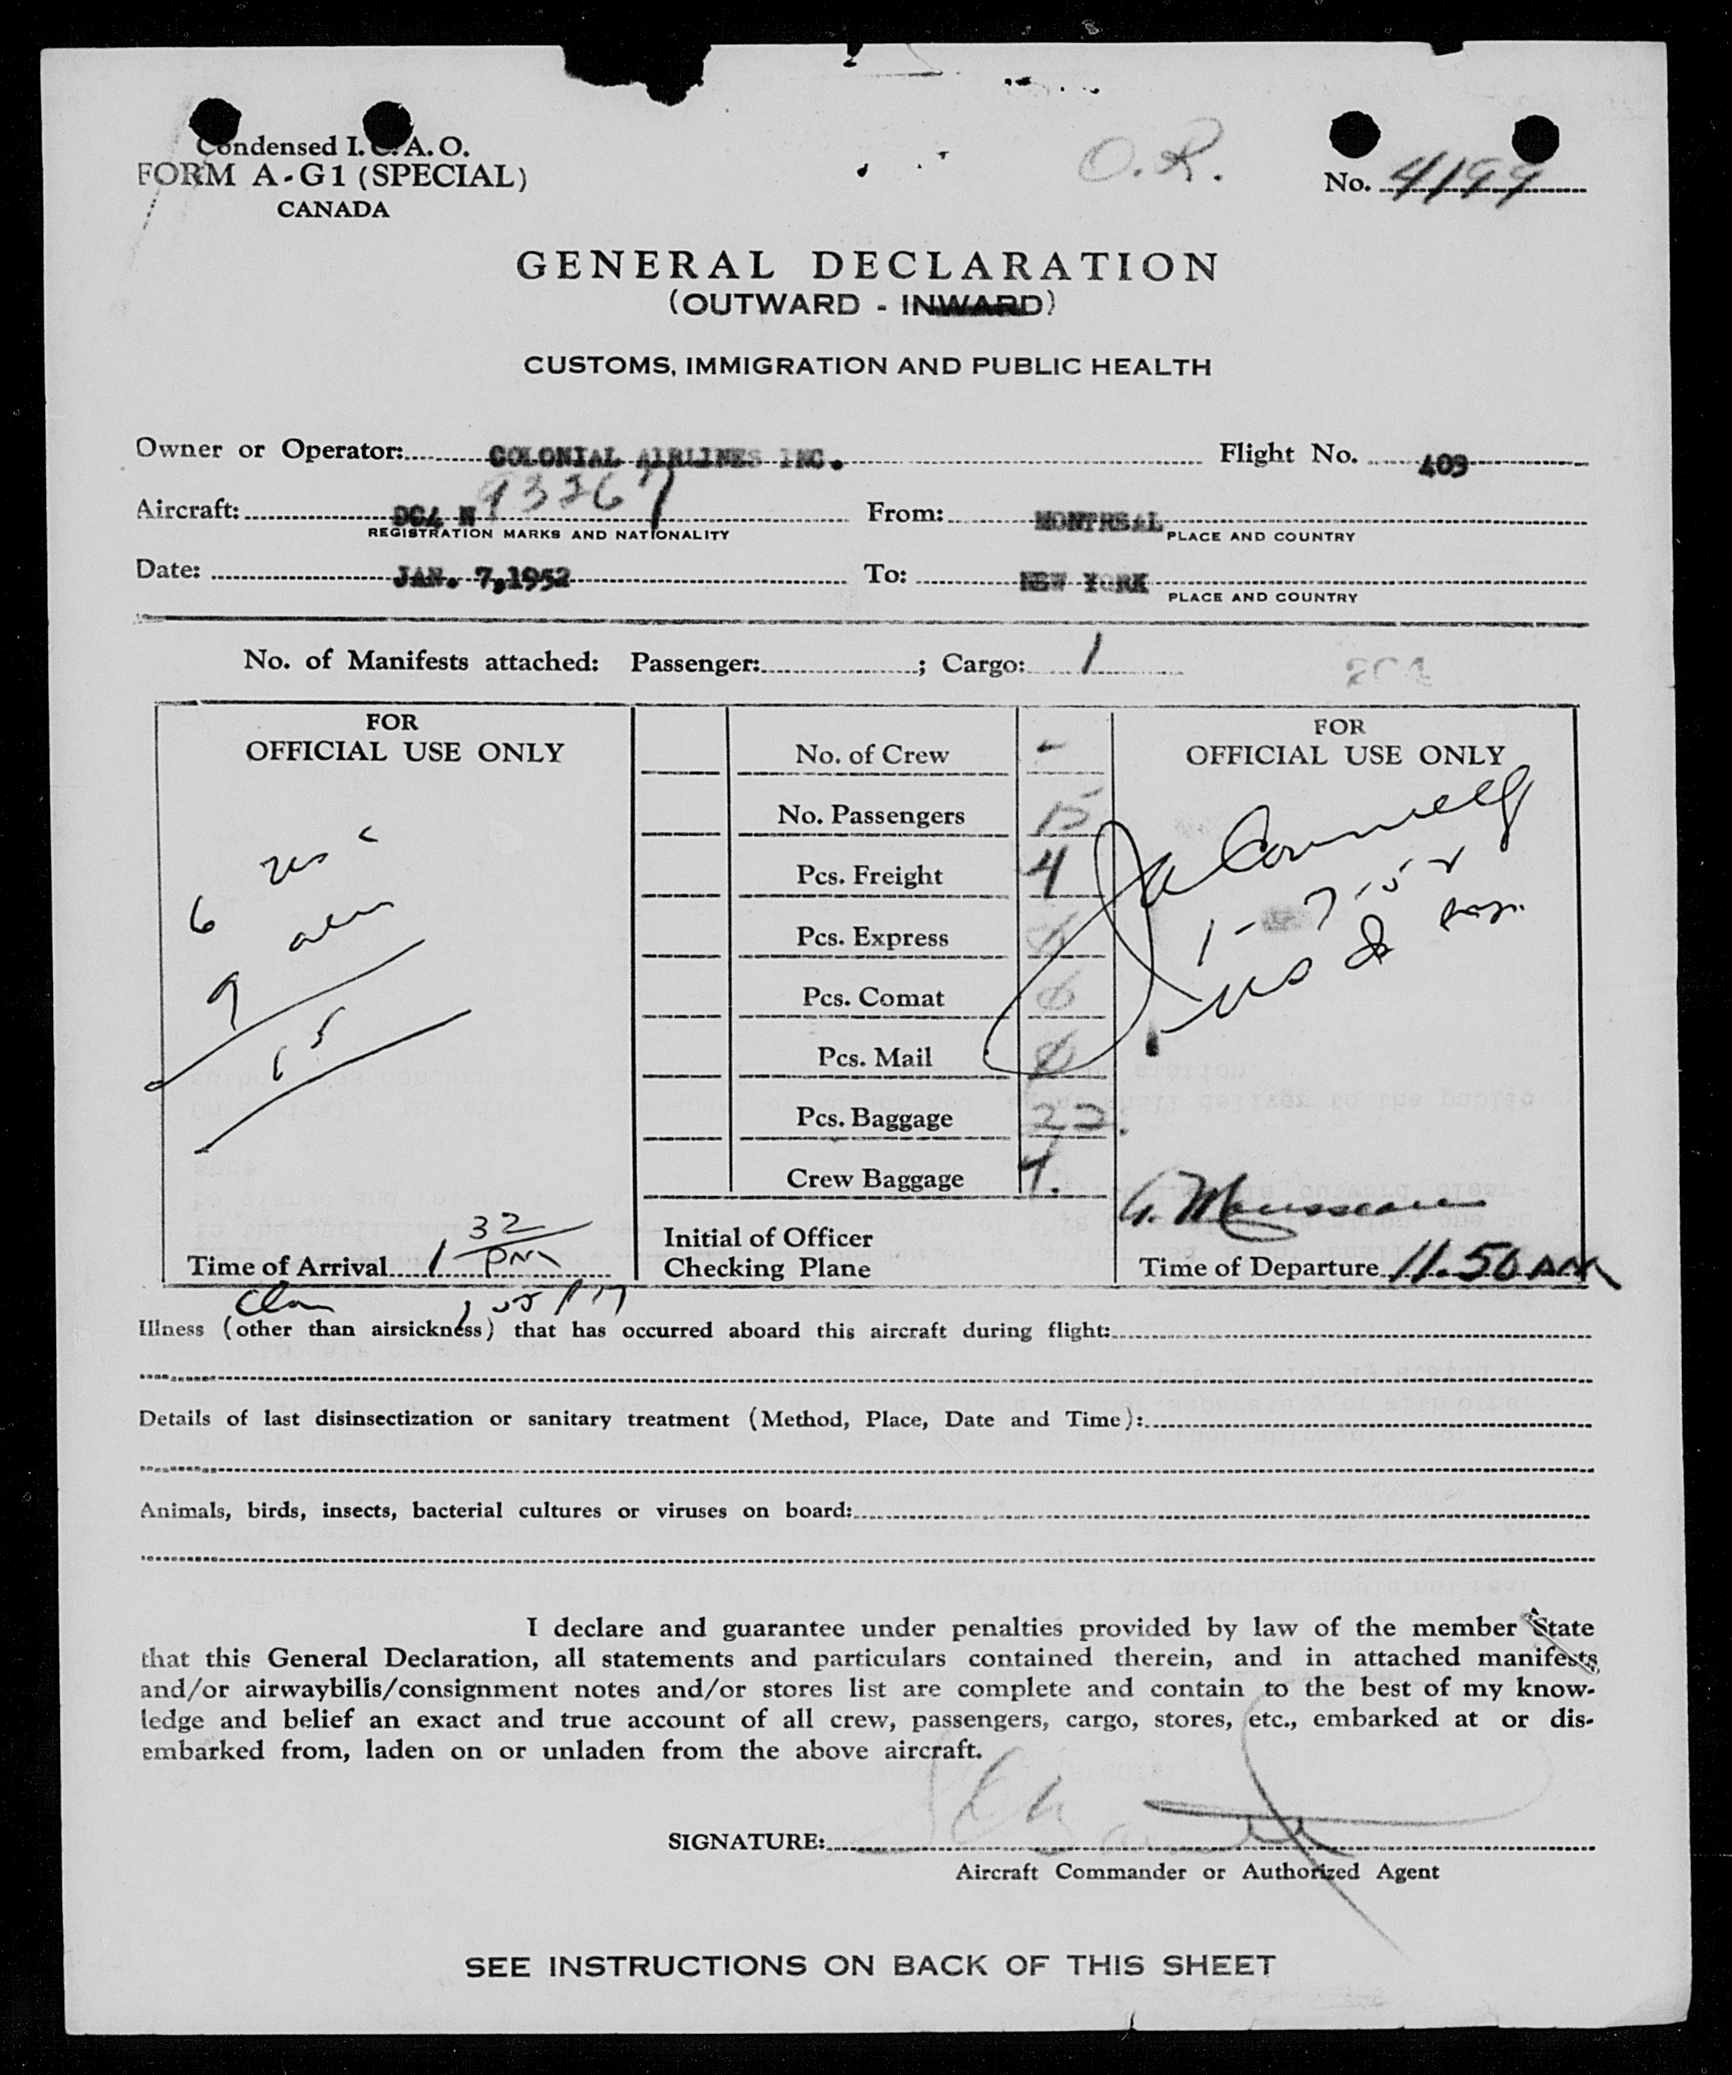 O. R.
Condensed I. C. A. O.
FORM A-G1 (SPECIAL)
CANADA
No. 4199
GENERAL DECLARATION
(OUTWARD - INWARD)
CUSTOMS, IMMIGRATION AND PUBLIC HEALTH
Owner or Operator: COLONIAL AIRLINES INC. Flight No. 409
Aircraft: DC4 N 93267 From: MONTREAL
REGISTRATION MARKS AND NATIONALITY PLACE AND COUNTRY
Date: JAN. 7,1952 To: NEW YORK
PLACE AND COUNTRY
No. of Manifests attached: Passenger: ; Cargo: 1
FOR
OFFICIAL USE ONLY
6
9
15
Time of Arrival 1 32 PM
No. of Crew -
No. Passengers 15
Pcs. Freight 4
Pcs. Express
Pcs. Comat
Pcs. Mail
Pcs. Baggage 22.
Crew Baggage 7.
Initial of Officer
Checking Plane
FOR
OFFICIAL USE ONLY
1-7-52
G. Mousseau
Time of Departure 11.50 AM
Illness (other than airsickness) that has occurred aboard this aircraft during flight:
Details of last disinsectization or sanitary treatment (Method, Place, Date and Time):
Animals, birds, insects, bacterial cultures or viruses on board:
I declare and guarantee under penalties provided by law of the member State
that this General Declaration, all statements and particulars contained therein, and in attached manifests
and/or airwaybills/consignment notes and/or stores list are complete and contain to the best of my know-
ledge and belief an exact and true account of all crew, passengers, cargo, stores, etc., embarked at or dis-
embarked from, laden on or unladen from the above aircraft.
SIGNATURE:
Aircraft Commander or Authorized Agent
SEE INSTRUCTIONS ON BACK OF THIS SHEET